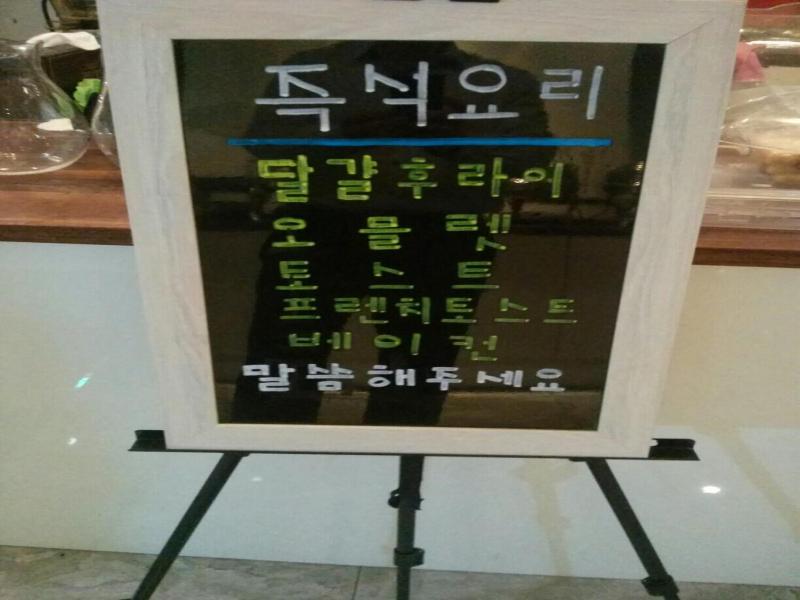 즉석요리
달걀후라이
오믈렛
토스트
프렌치토스트
베이컨
말씀해주세요